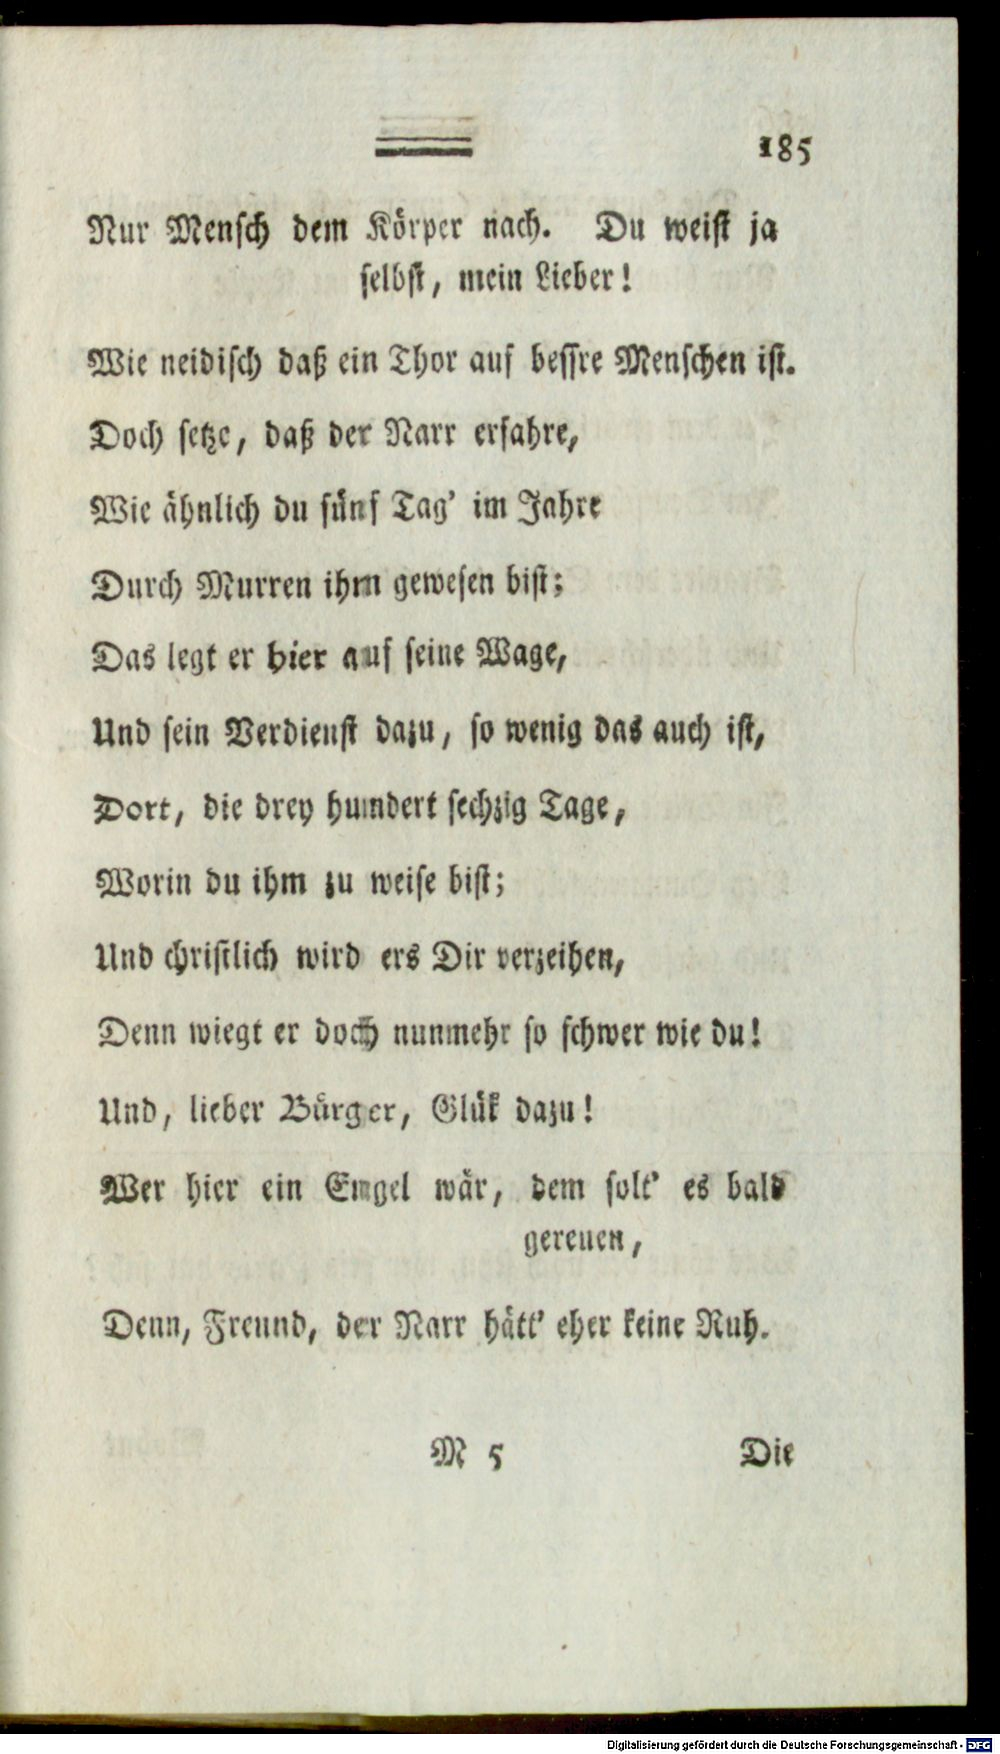 185
Nur Mensch dem Körper nach. Du weist ja
selbst, mein Lieber!
Wie neidisch daß ein Thor auf bessre Menschen ist.
Doch setze, daß der Narr erfahre,
Wie ähnlich du fünf Tag' im Jahre
Durch Murren ihm gewesen bist;
Das legt er hier auf seine Wage,
Und sein Verdienst dazu, so wenig das auch ist,
Dort, die drey hundert sechzig Tage,
Worin du ihm zu weise bist;
Und christlich wird ers Dir verzeihen,
Denn wiegt er doch nunmehr so schwer wie du!
Und, lieber Bürger, Glük dazu!
Wer hier ein Engel wär, dem solt' es bald
gereuen,
Denn, Freund, der Narr hätt' eher keine Ruh.
M 5 Die
Digitalisierung gefördert durch die Deutsche Forschungsgemeinschaft - DFG